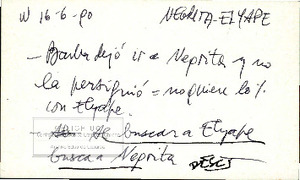 W 16-6-90 NEGRITA-ELYAPE
- Barba dejó ir a Negrita y no
la persiguió = no quiere lo %
con Elyape.
se buscar a Elyape
buscar a Negrita